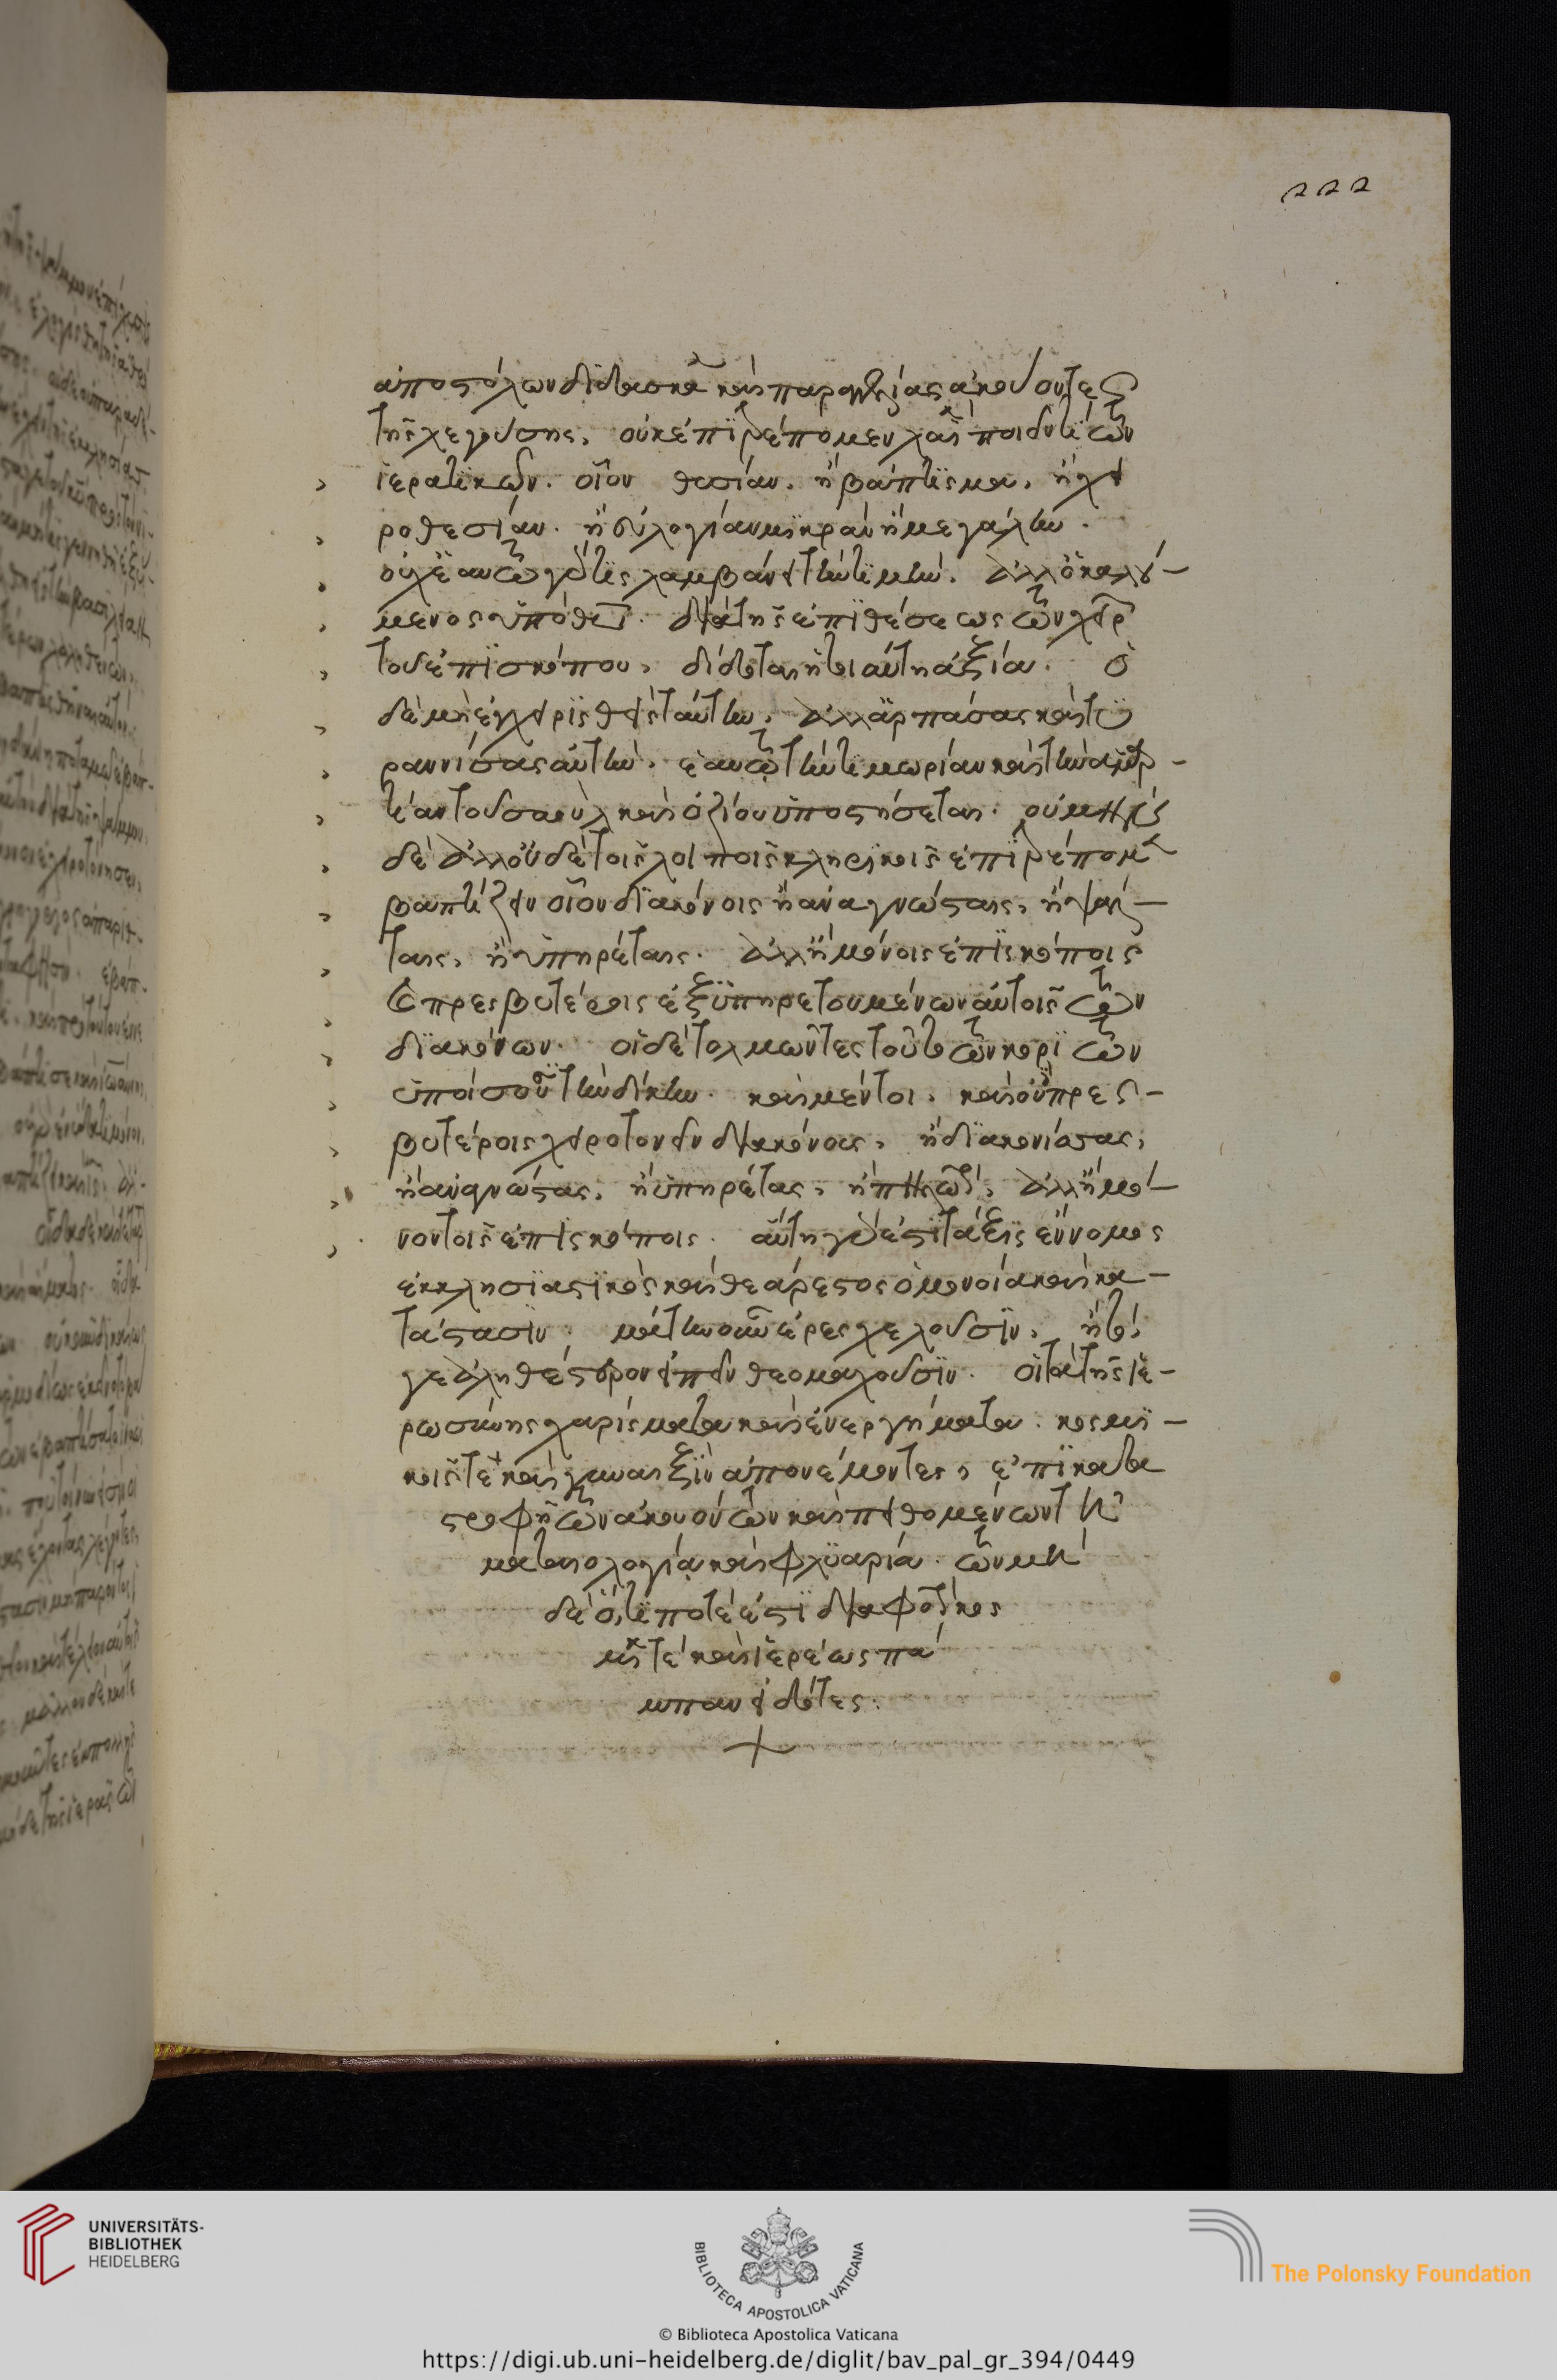 222
ἀποστόλων διδασκαλίας καὶ παραγγελίας ἀκούοντες
τῆς λεγούσης. οὐκ ἐπιτρέπομεν λαϊκοῖς ποιεῖν τι τῶν
ἱερατικῶν. οἷον θυσίαν. ἢ βάπτισμα. ἢ χει
ροθεσίαν. ἢ εὐλογίαν μικρὰν ἢ μεγάλην.
οὐχ ἑαυτῷ γάρ τις λαμβάνει τὴν τιμήν. ἀλλ' ὁ καλού-
μενος ὑπὸ θεοῦ. διὰ τῆς ἐπιθέσεως τῶν χειρῶν
τοῦ ἐπισκόπου. δίδοται ἡ τοιαύτη ἀξία. ὁ
δὲ μὴ ἐγχειρισθεὶς ταύτην. ἀλλ' ἁρπάσας καὶ τυ
ραννίσας αὐτήν. ἑαυτῷ τὴν τιμωρίαν καὶ τὴν ἁμαρ-
τίαν τοῦ σαοὺλ καὶ ὀζίου ὑποστήσεται. οὐ μὴν
δὲ ἀλλ' οὐδὲ τοῖς λοιποῖς κληρικοῖς ἐπιτρέπομεν
βαπτίζειν οἷον διακόνοις ἢ ἀναγνώσταις. ἢ ψάλ-
ταις. ἢ ὑπηρέταις. ἀλλ' ἢ μόνοις ἐπισκόποις
καὶ πρεσβυτέροις ἐξυπηρετουμένων αὐτοῖς τῶν
διακόνων. οἱ δὲ τολμῶντες τοῦτο τὴν περὶ τῶν
ὑποίσουσι τὴν δίκην. καὶ μέντοι. καὶ οὐ πρεσ-
βυτέροις χειροτονεῖν διακόνους. ἢ διακονίσσας.
ἢ ἀναγνώστας. ἢ ὑπηρέτας. ἢ πυλωρούς. ἀλλ' ἢ μό-
νον τοῖς ἐπισκόποις. αὕτη γάρ ἐστι τάξις εὔνομος
ἐκκλησιαστικὸς καὶ θεάρεστος ὁμονοία καὶ κα-
τάστασιν. μάτην οὖν ἔρεσχελοῦσιν. ἢ τό
γε ἀληθέστερον εἰπεῖν θεομαχοῦσιν. οἱ τὰ τῆς ἱε-
ρωσύνης χαρίσματα καὶ ἐνεργήματα. κοσμι-
κοῖς τε καὶ γυναιξὶν ἀπονέμοντες. ἐπὶ κατα
στροφῇ τῶν ἀκουόντων καὶ πειθομένων τῇ
ματαιολογίᾳ καὶ φλυαρίᾳ. τῶν μη
δὲ ὅ,τι ποτέ ἐστι διάφορος κοσ
μικοῦ τὲ καὶ ἱερέως πά
μπαν εἰδότες.
UNIVERSITÄTS-
BIBLIOTHEK
HEIDELBERG
BIBLIOTECA APOSTOLICA VATICANA
The Polonsky Foundation
© Biblioteca Apostolica Vaticana
https://digi.ub.uni-heidelberg.de/diglit/bav_pal_gr_394/0449